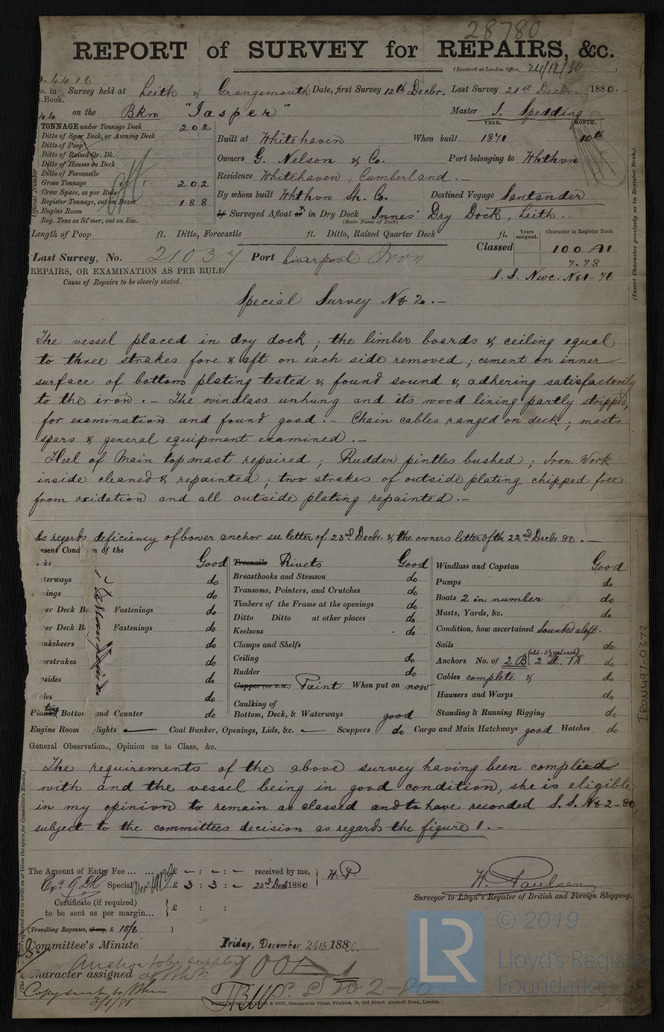 28780
REPORT of SURVEY for REPAIRS, &c.
(Received at London Office, 24/12/80
No. in Survey held at Leith & Grangemouth Date, first Survey 12th Decbr. Last Survey 21st Decbr. 1880.
Book.
on the Bkn "Jasper" Master S. Spedding
TONNAGE under Tonnage Deck 202
Ditto of Spar Deck, or Awning Deck
Ditto of Poop
Ditto of Raised Qr. Dk.
Ditto of Houses on Deck
Ditto of Forecastle
Gross Tonnage 202
Crew Space, as per Rule
Register Tonnage, cut on Beam 188
Engine Room
Reg. Tons as St'mer, cut on Bm.
YEAR. MONTH.
Built at Whitehaven When built 1871 10th
Owners G. Nelson & Co. Port belonging to Whthvn
Residence Whitehaven, Cumberland.
By whom built Whthvn Sh. Co. Destined Voyage Santander
If Surveyed Afloat or in Dry Dock Innes' Dry Dock, Leith.
(State Name of Dock)
Length of Poop ft. Ditto, Forecastle ft. Ditto, Raised Quarter Deck ft.
Years assigned. Character in Register Book
Last Survey, No. 21037 Port Liverpool Iron Classed 100 A1
7.78
S. S. Nwc. No1-78
REPAIRS, OR EXAMINATION AS PER RULE
Cause of Repairs to be clearly stated.
Special Survey No 2.-
The vessel placed in dry dock; the limber boards & ceiling equal
to three strakes fore & aft on each side removed; cement on inner
surface of bottom plating tested & found sound & adhering satisfactorily
to the iron.- The windlass unhung and its wood lining partly stripped,
for examination and found good.- Chain cables ranged on deck; masts
spars & general equipment examined.-
Heel of Main topmast repaired; Rudder pintles bushed; Iron Work
inside cleaned & repainted; two strakes of outside plating chipped free
from oxidation and all outside plating repainted.-
As regards deficiency of bower anchor see letter of 23rd Decbr. & the owners letter of the 22nd Decbr 80.-
Present Condition of the
Good
do
do
Upper Deck Fastenings do
Fastenings do
do
do
do
do
Plating Bottom and Counter do
Treenails Rivets Good
Breasthooks and Stemson do
Transoms, Pointers, and Crutches do
Timbers of the Frame at the openings do
Ditto Ditto at other places do
Keelsons do
Clamps and Shelfs
Ceiling do
Rudder do
Paint When put on now
Caulking of
Bottom, Deck, & Waterways good
Windlass and Capstan Good
Pumps do
Boats 2 in number do
Masts, Yards, &c. do
Condition, how ascertained sounded aloft.
Sails do
Anchors No. of 2 B 2 St. 1K do
Cables complete & do
Hawsers and Warps do
Standing & Running Rigging do
Engine Room Skylights — Coal Bunker, Openings, Lids, &c. — Scuppers do Cargo and Main Hatchways good Hatches do
General Observations, Opinion as to Class, &c.
The requirements of the above survey having been complied
with and the vessel being in good condition, she is eligible
in my opinion to remain as classed and to have recorded S.S. No 2-80,
subject to the committees decision as regards the figure 1.-
The Amount of Entry Fee ... £ - : - : - received by me, W.P
Special £ 3 : 3 : - 20th Decr 1880
Certificate (if required) £ :
to be sent as per margin...
Travelling Expenses, if any, £ 15/6
W. Paulsen
Surveyor to Lloyd's Register of British and Foreign Shipping.
Committee's Minute Friday, December 24th, 1880.
Character assigned 100 A1
S. S. No 2-80
Copy sent to Whn
3/1/81
IRON497-0372
© 2019
LR
Lloyd's Register
Foundation